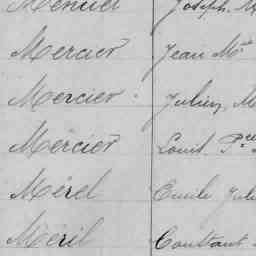 Menuel Joseph
Mercier Jean M.
Mercier Julien M
Mercier Louis P.
Mérel Emile Juli
Méril Constant